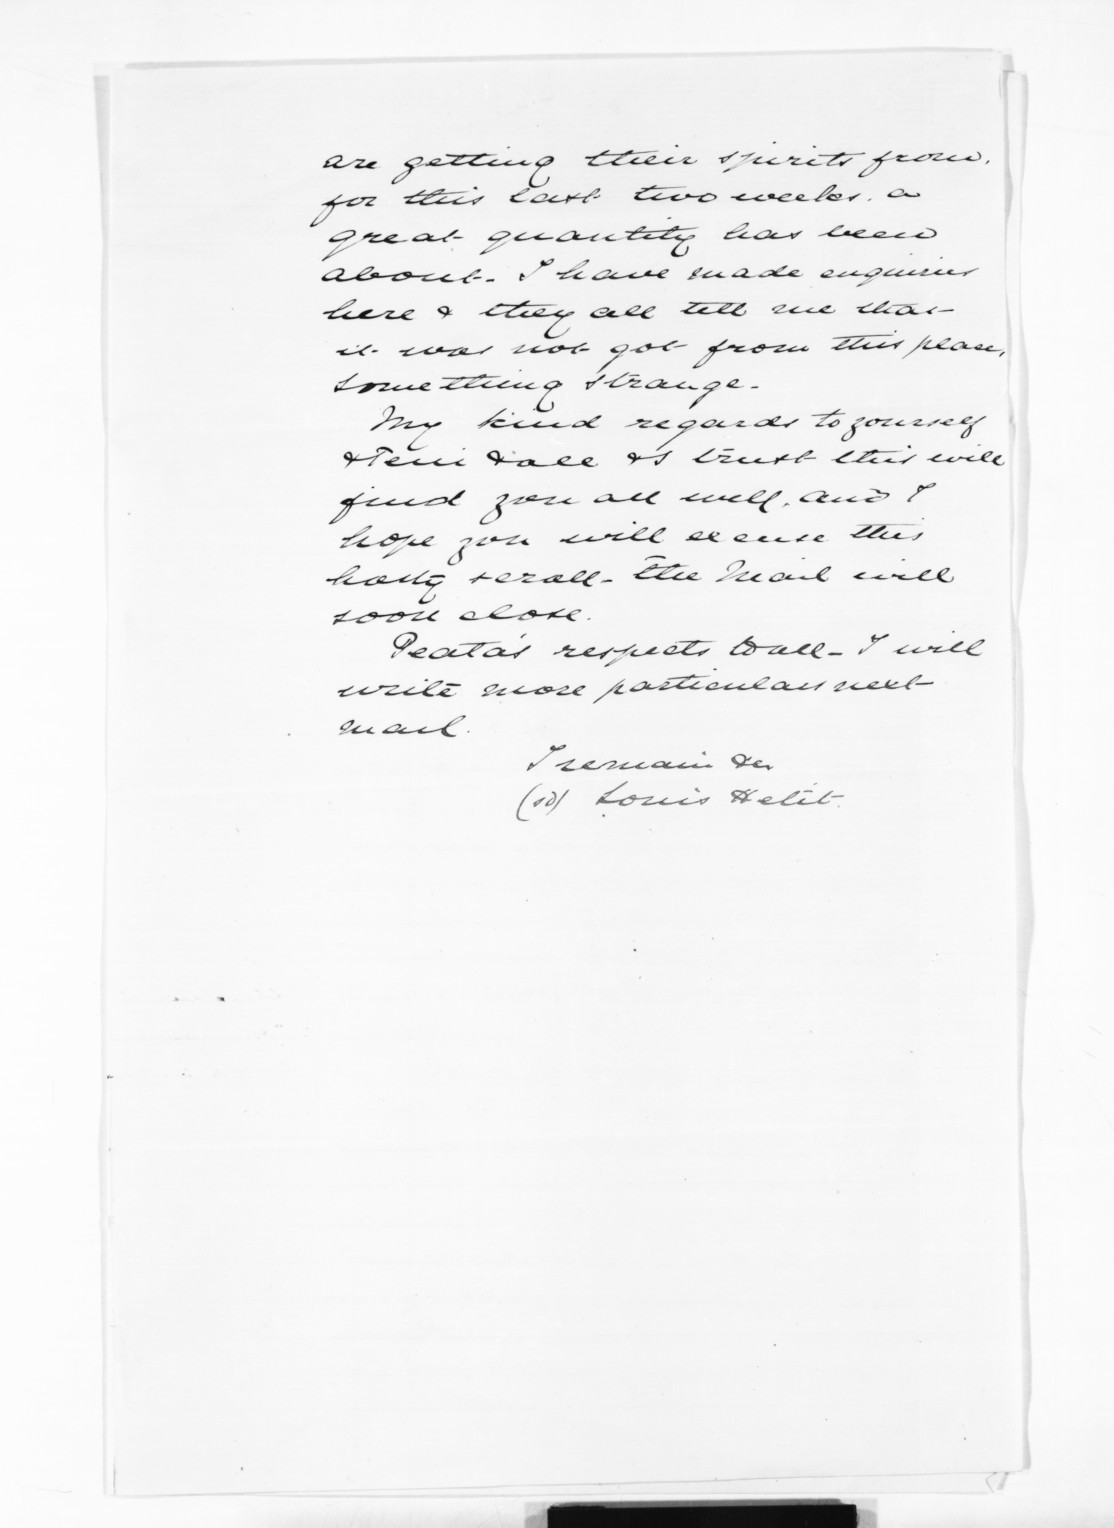 are getting their spirits from.
for this last two weeks. a
great quantity has been
about. I have made enquiries
here & they all tell me that
it was not got from this place,
something strange.
My kind regards to yourself
& Teni & all & I trust this will
find you all well. and I
hope you will excuse this
hasty scrall - the Mail will
soon close.
Peata's respects to all - I will
write more particulars next
mail.
I remain &c
(sd) Louis Hetit